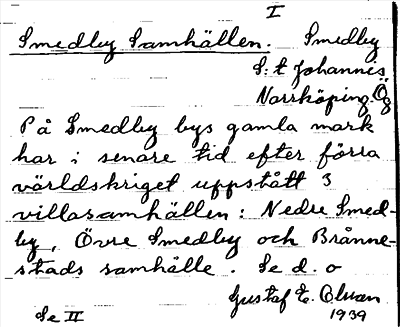 I
Smedby Samhällen. Smedby
S:t Johannes
Norrköping. Ög
På Smedby bys gamla mark
har i senare tid efter förra
världskriget uppstått 3
villasamhällen: Nedre Smed-
by, Övre Smedby och Brånne-
stads samhälle. Se d. o
Gustaf E. Olsson
Se II 1939